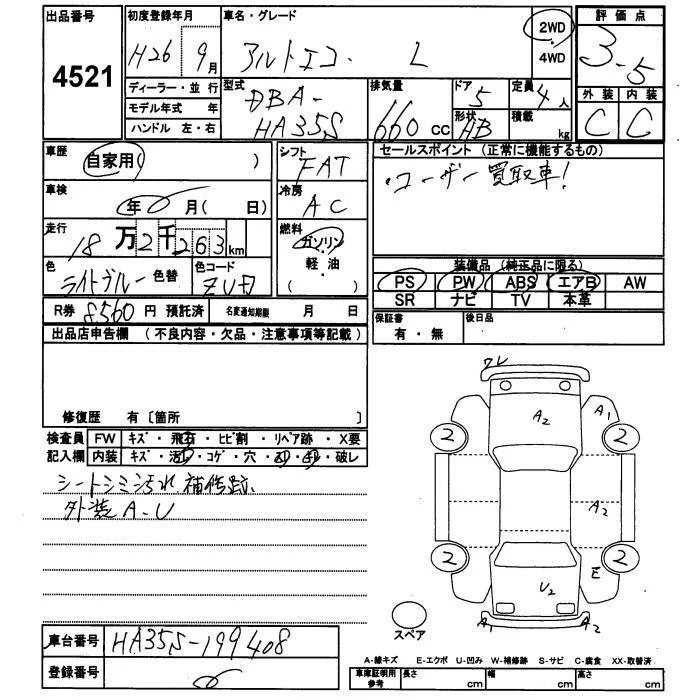 出品番号
4521
初度登録年月
H26 9月
ディーラー・並 行
モデル年式 年
ハンドル 左・右
車名・グレード
アルトエコ L
2WD
4WD
評価点
3.5
型式
DBA-
HA35S
排気量
660cc
ドア
5
形状
HB
定員
4人
積載
kg
外 装 内 装
C C
車歴
自家用( )
車検
年 月( 日)
走行
18万2千263km
色
ライトブルー 色替
色コード
ZUD
シフト
FAT
冷房
AC
燃料
ガソリン
軽・油
( )
セールスポイント (正常に機能するもの)
・ユーザー買取車!
装備品 (純正品に限る)
PS PW ABS エアB AW
SR ナビ TV 本革
R券 8560 円 預託済 名変通知期限 月 日
保証書
有・無
後日品
出品店申告欄 (不良内容・欠品・注意事項等記載)
修復歴 有〔箇所 〕
検査員 FW キズ・飛石・ヒビ割・リペア跡・X要
記入欄 内装 キズ・汚れ・コゲ・穴・ ・ ・破レ
シートシミ汚れ、補修跡、
外装A-U
ワレ
A2
A1
2
2
A2
2
2
E
U2
A1
A2
スペア
車台番号 HA35S-199408
登録番号
A-線キズ E-エクボ U-凹み W-補修跡 S-サビ C-腐食 XX-取替済
車庫証明用
参考
長さ cm 幅 cm 高さ cm